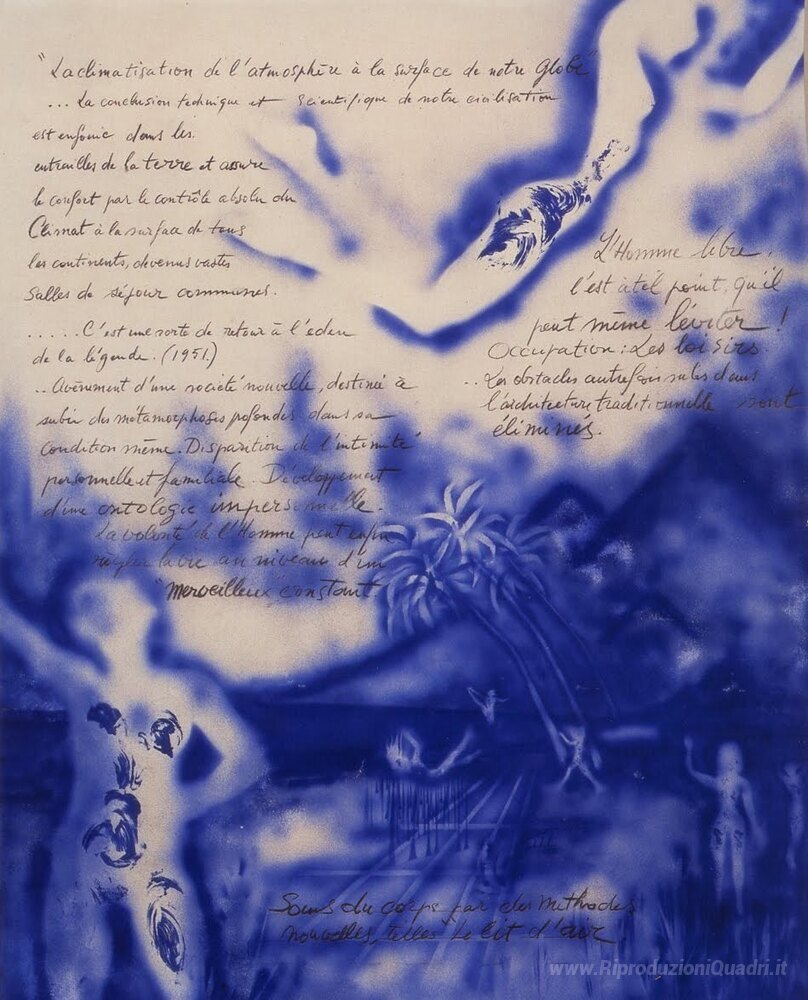 "La climatisation de l'atmosphère à la surface de notre Globe"
... La conclusion technique et scientifique de notre civilisation
est enfouie dans les
entrailles de la terre et assure
le confort par le contrôle absolu du
Climat à la surface de tous
les continents, devenus vastes
salles de séjour communes.
..... C'est une sorte de retour à l'eden
de la légende. (1951.)
.. Avènement d'une société nouvelle, destinée à
subir des métamorphoses profondes dans sa
condition même. Disparition de l'intimité
personnelle et familiale. Développement
d'une ontologie impersonnelle.
La volonté de l'Homme peut enfin
régler la vie au niveau d'un
"merveilleux" constant
L'Homme libre,
l'est à tel point, qu'il
peut même léviter !
Occupation : Les loisirs.
... Les obstacles autrefois subis dans
l'architecture traditionnelle sont
éliminés.
Soins du corps par des méthodes
nouvelles, telles le lit d'air
www.RiproduzioniQuadri.it